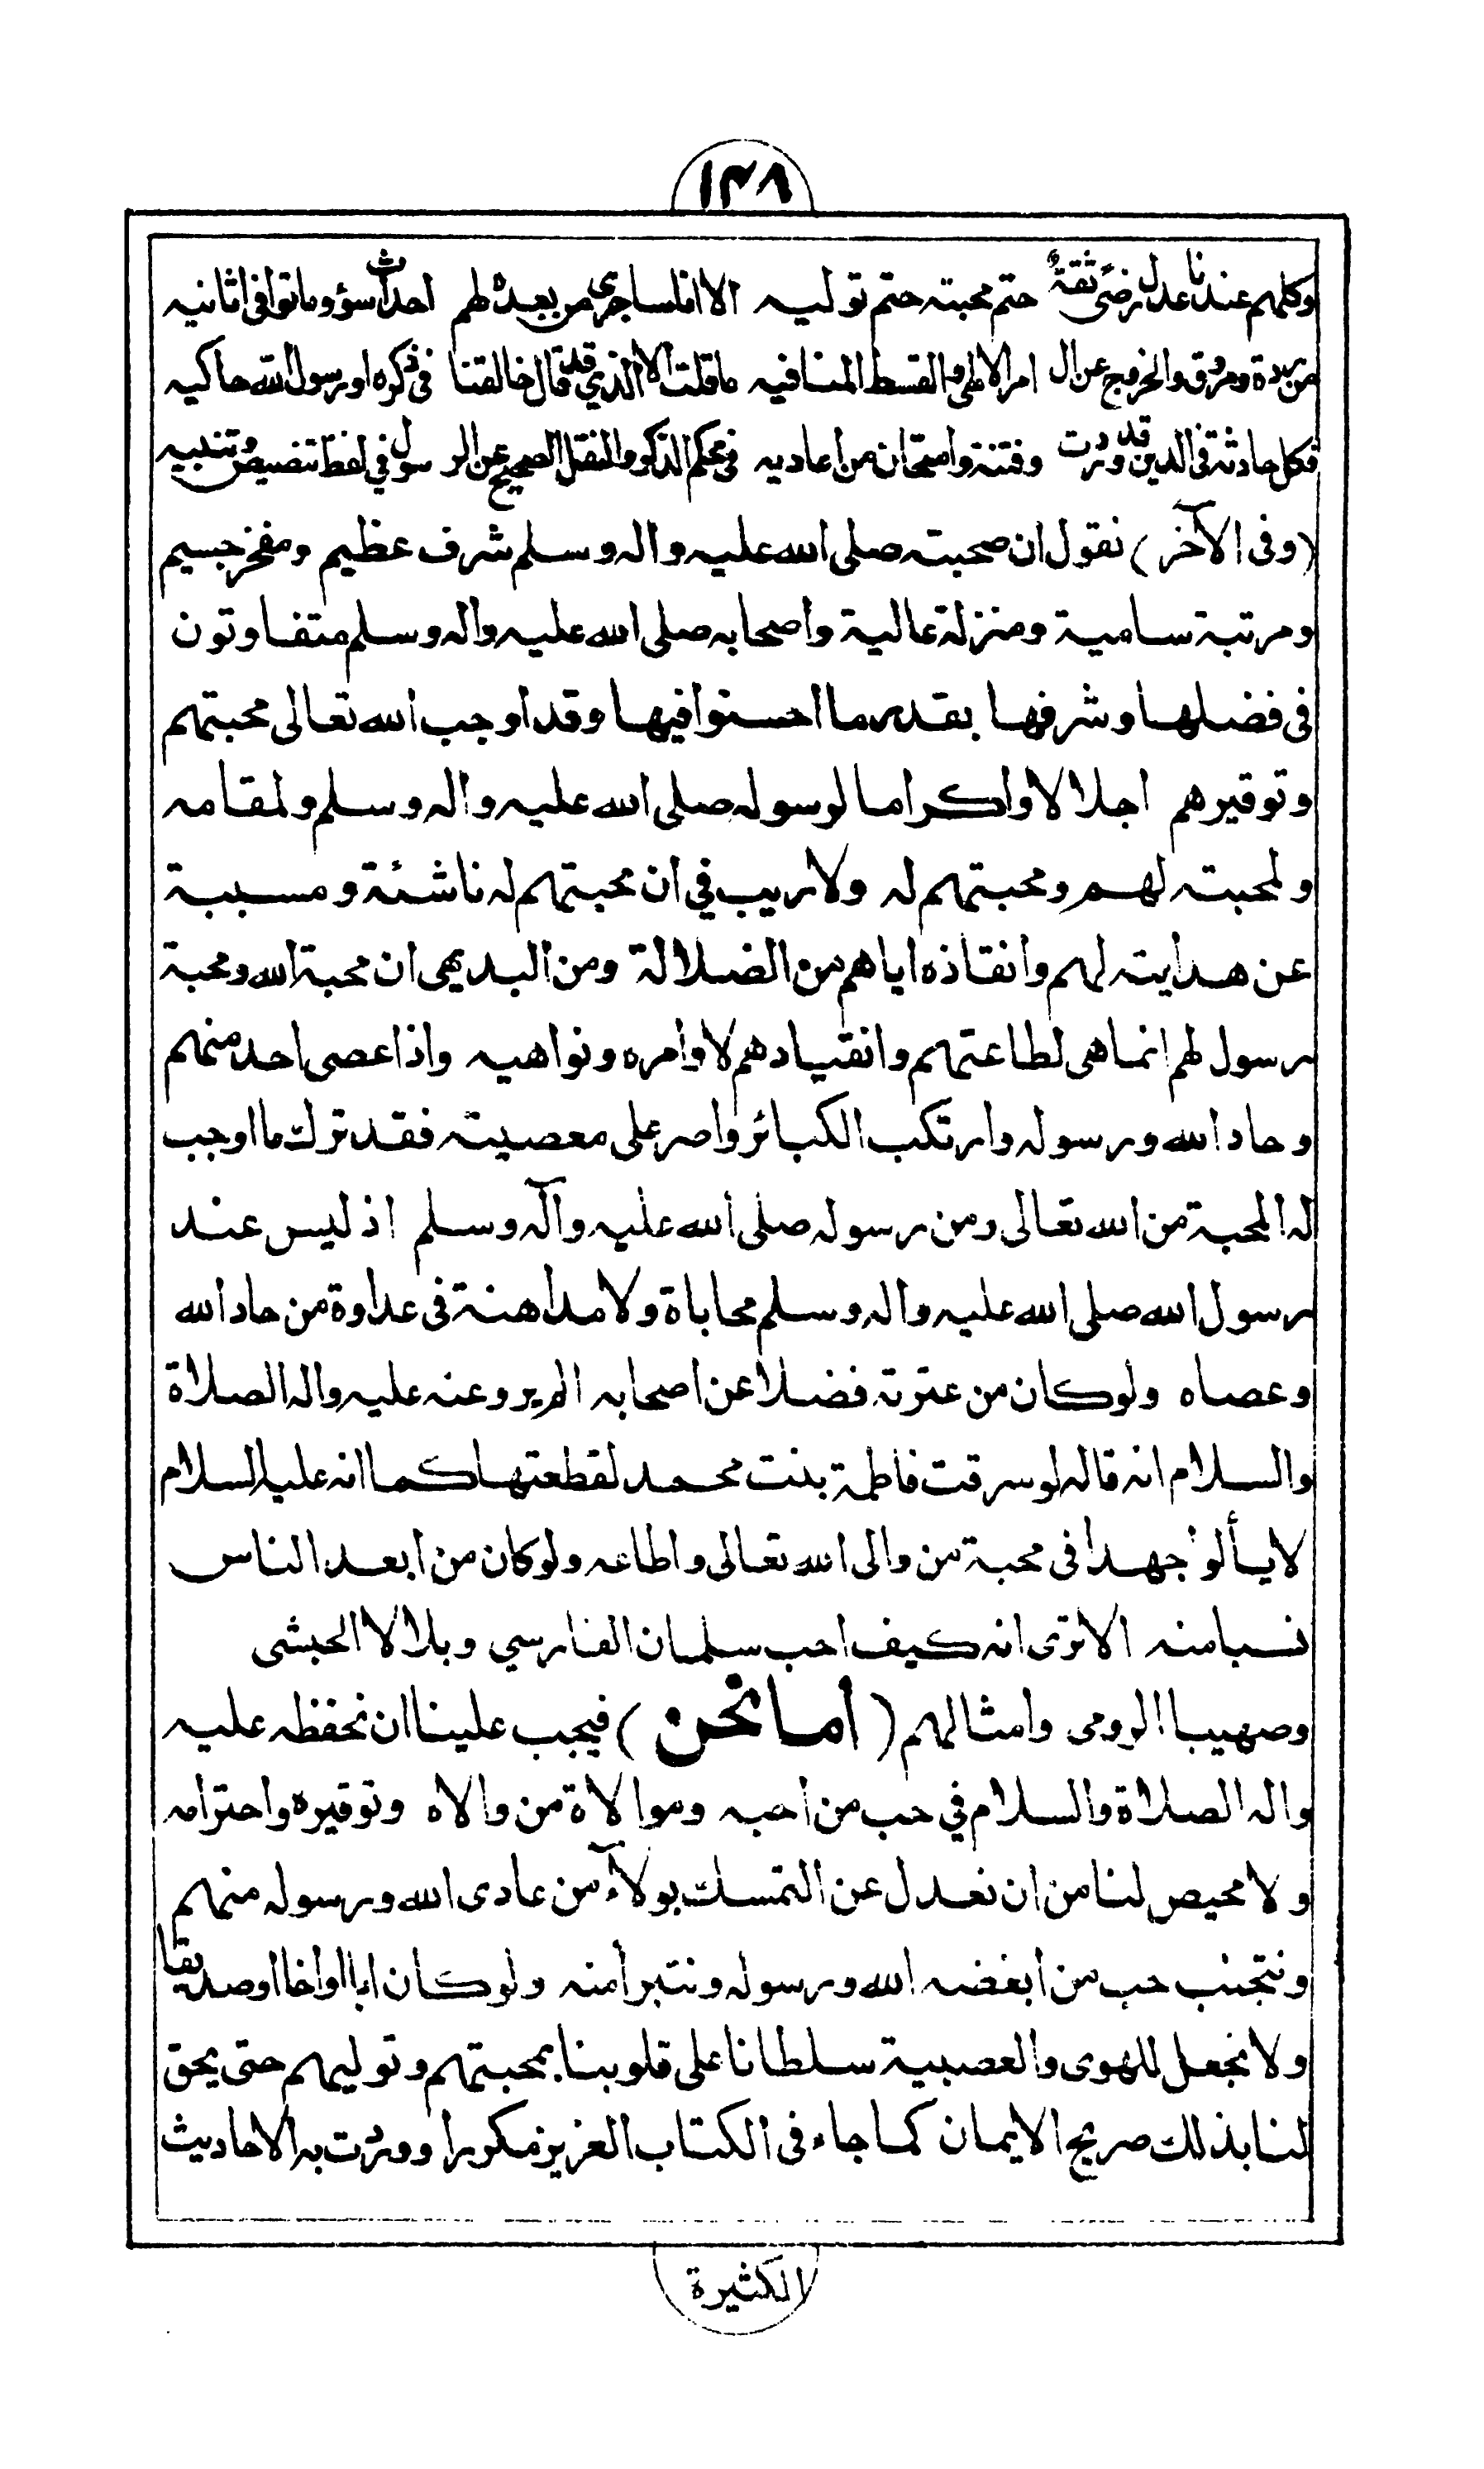 ١٤٨
وكلهم عندنا عدل رضى ثقة حتم محبته حتم توليه الا اناسا جرى من بعده لهم احداث سوؤ وماتوا فى اثانيه
من ردة ومروق والخروج عن ال امر الالهى والقسط المنافيه ماقلت الا الذي قد قال خالقنا فى ذكره او رسول الله حاكيه
فكل حادثة فى الدين قد وردت وفتنة وامتحان من اعاديه فى محكم الذكر والنقل الصحيح عن الر سول في لفظ تنصيص وتنبيه
(وفى الآخر) نقول ان صحبته صلى الله عليه واله وسلم شرف عظيم ومفخر جسيم
ومرتبة سامية ومنزلة عالية واصحابه صلى الله عليه واله وسلم متفاوتون
فى فضلها وشرفها بقدر ما احسنوا فيها وقد اوجب الله تعالى محبتهم
وتوقيرهم اجلالا واكراما لرسوله صلى الله عليه واله وسلم ولمقامه
ولمحبته لهم ومحبتهم له ولا ريب في ان محبتهم له ناشئة ومسببة
عن هدايته لهم وانقاذه اياهم من الضلالة ومن البديهى ان محبة الله ومحبة
رسول لهم انما هى لطاعتهم وانقيادهم لاوامره ونواهيه واذا عصى احد منهم
وحاد الله ورسوله وارتكب الكبائر واصر على معصيته فقد ترك ما اوجب
له المحبة من الله تعالى ومن رسوله صلى الله عليه وآله وسلم اذ ليس عند
رسول الله صلى الله عليه واله وسلم محاباة ولا مداهنة فى عداوة من حاد الله
وعصاه ولو كان من عترته فضلا عن اصحابه الم يرو عنه عليه واله الصلاة
والسلام انه قال لو سرقت فاطمة بنت محمد لقطعتها كما انه عليه السلام
لا يألو جهدا فى محبة من والى الله تعالى واطاعه ولو كان من ابعد الناس
نسبا منه الا ترى انه كيف احب سلمان الفارسي وبلالا الحبشى
وصهيبا الرومى وامثالهم (اما نحن) فيجب علينا ان نحفظه عليه
واله الصلاة والسلام في حب من احبه وموالاة من والاه وتوقيره واحترامه
ولا محيص لنا من ان نعدل عن التمسك بولآء من عادى الله ورسوله منهم
ونتجنب حب من ابغضه الله ورسوله ونتبرأ منه ولو كان ابا او اخا او صديقا
ولا نجعل للهوى والعصبية سلطانا على قلوبنا بمحبتهم وتوليهم حتى يحق
لنا بذلك صريح الايمان كما جاء فى الكتاب العزيز مكررا ووردت به الاحاديث
الكثيرة